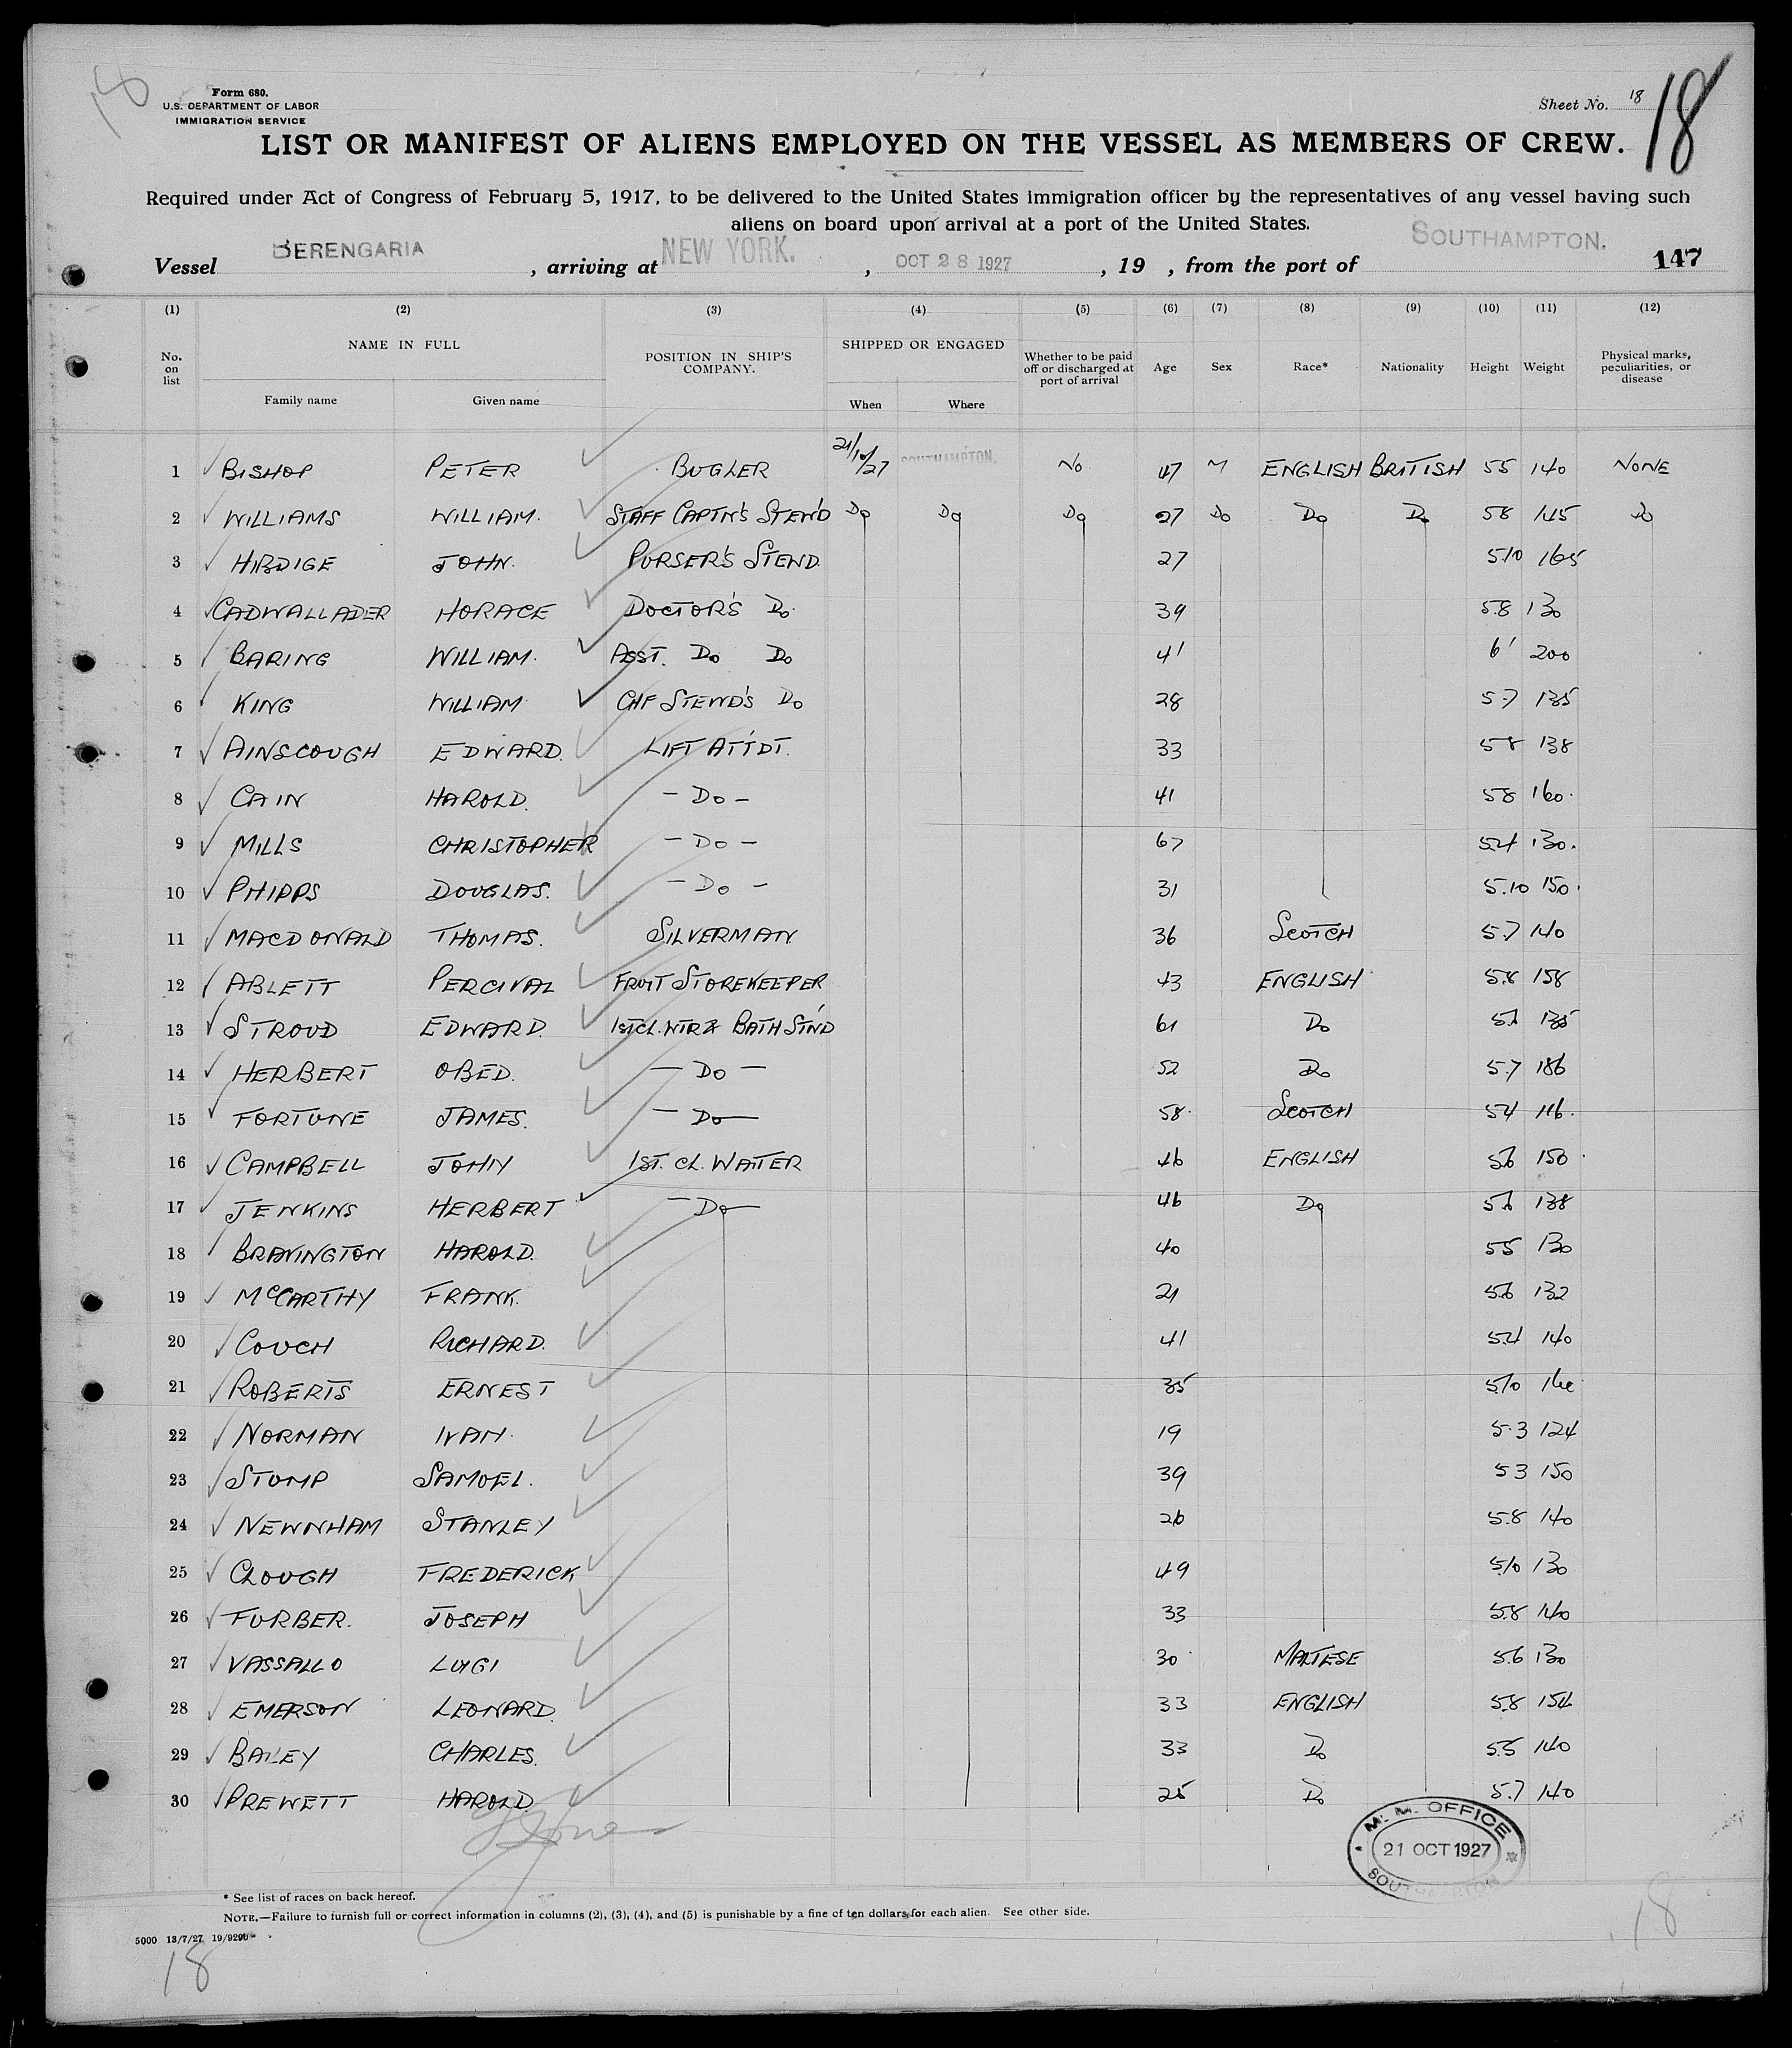 18
Form 680.
U.S. DEPARTMENT OF LABOR
IMMIGRATION SERVICE
Sheet No. 18
18
LIST OR MANIFEST OF ALIENS EMPLOYED ON THE VESSEL AS MEMBERS OF CREW.
Required under Act of Congress of February 5, 1917, to be delivered to the United States immigration officer by the representatives of any vessel having such
aliens on board upon arrival at a port of the United States.
Vessel BERENGARIA, arriving at NEW YORK., OCT 28 1927, 19 , from the port of SOUTHAMPTON. 147
(1) (2) (3) (4) (5) (6) (7) (8) (9) (10) (11) (12)
No. on list NAME IN FULL POSITION IN SHIP'S COMPANY. SHIPPED OR ENGAGED Whether to be paid off or discharged at port of arrival Age Sex Race* Nationality Height Weight Physical marks, peculiarities, or disease
Family name Given name When Where
1 BISHOP PETER BUGLER 21/10/27 SOUTHAMPTON. NO 47 M ENGLISH BRITISH 55 140 NONE
2 WILLIAMS WILLIAM. STAFF CAPTN'S STEW'D DO DO DO 27 DO DO DO 58 145 DO
3 HIBDIGE JOHN. PURSER'S STEWD. 27 510 165
4 CADWALLADER HORACE DOCTOR'S DO. 39 5.8 130
5 BARING WILLIAM. ASST. DO DO 41 6' 200
6 KING WILLIAM CHF STEWD'S DO 28 5.7 135
7 AINSCOUGH EDWARD. LIFT ATT'DT. 33 58 138
8 CAIN HAROLD. - DO - 41 58 160.
9 MILLS CHRISTOPHER - DO - 67 5.4 130.
10 PHIPPS DOUGLAS. - DO - 31 5.10 150.
11 MACDONALD THOMAS. SILVERMAN. 36 SCOTCH 5.7 140
12 ABLETT PERCIVAL FRUIT STOREKEEPER 43 ENGLISH 5.8 158
13 STROUD EDWARD. 1ST CL. WTR & BATH ST'WD 61 DO 5.6 135
14 HERBERT OBED. - DO - 52 DO 5.7 186
15 FORTUNE JAMES. - DO - 58. SCOTCH 54 116.
16 CAMPBELL JOHN 1ST. CL. WAITER 46 ENGLISH 56 150.
17 JENKINS HERBERT - DO - 46 DO 5.6 138
18 BRAVINGTON HAROLD. 40 55 130
19 McCARTHY FRANK. 21 5.6 132
20 COUCH RICHARD. 41 5.4 140
21 ROBERTS ERNEST 35 5.10
22 NORMAN IVAN. 19 5.3 124
23 STUMP SAMUEL. 39 53 150
24 NEWNHAM STANLEY 26 5.8 140
25 CLOUGH FREDERICK 49 5.10 130
26 FURBER. JOSEPH 33 5.8 140
27 VASSALLO LUIGI 30 MALTESE 5.6 130
28 EMERSON LEONARD. 33 ENGLISH 5.8 154
29 BAILEY CHARLES. 33 DO 5.5 140
30 PREWETT HAROLD. 25 DO 5.7 140
M. M. OFFICE
21 OCT 1927
SOUTHAMPTON
* See list of races on back hereof.
NOTE.—Failure to furnish full or correct information in columns (2), (3), (4), and (5) is punishable by a fine of ten dollars for each alien. See other side.
5000 13/7/27 19/9290
18
18